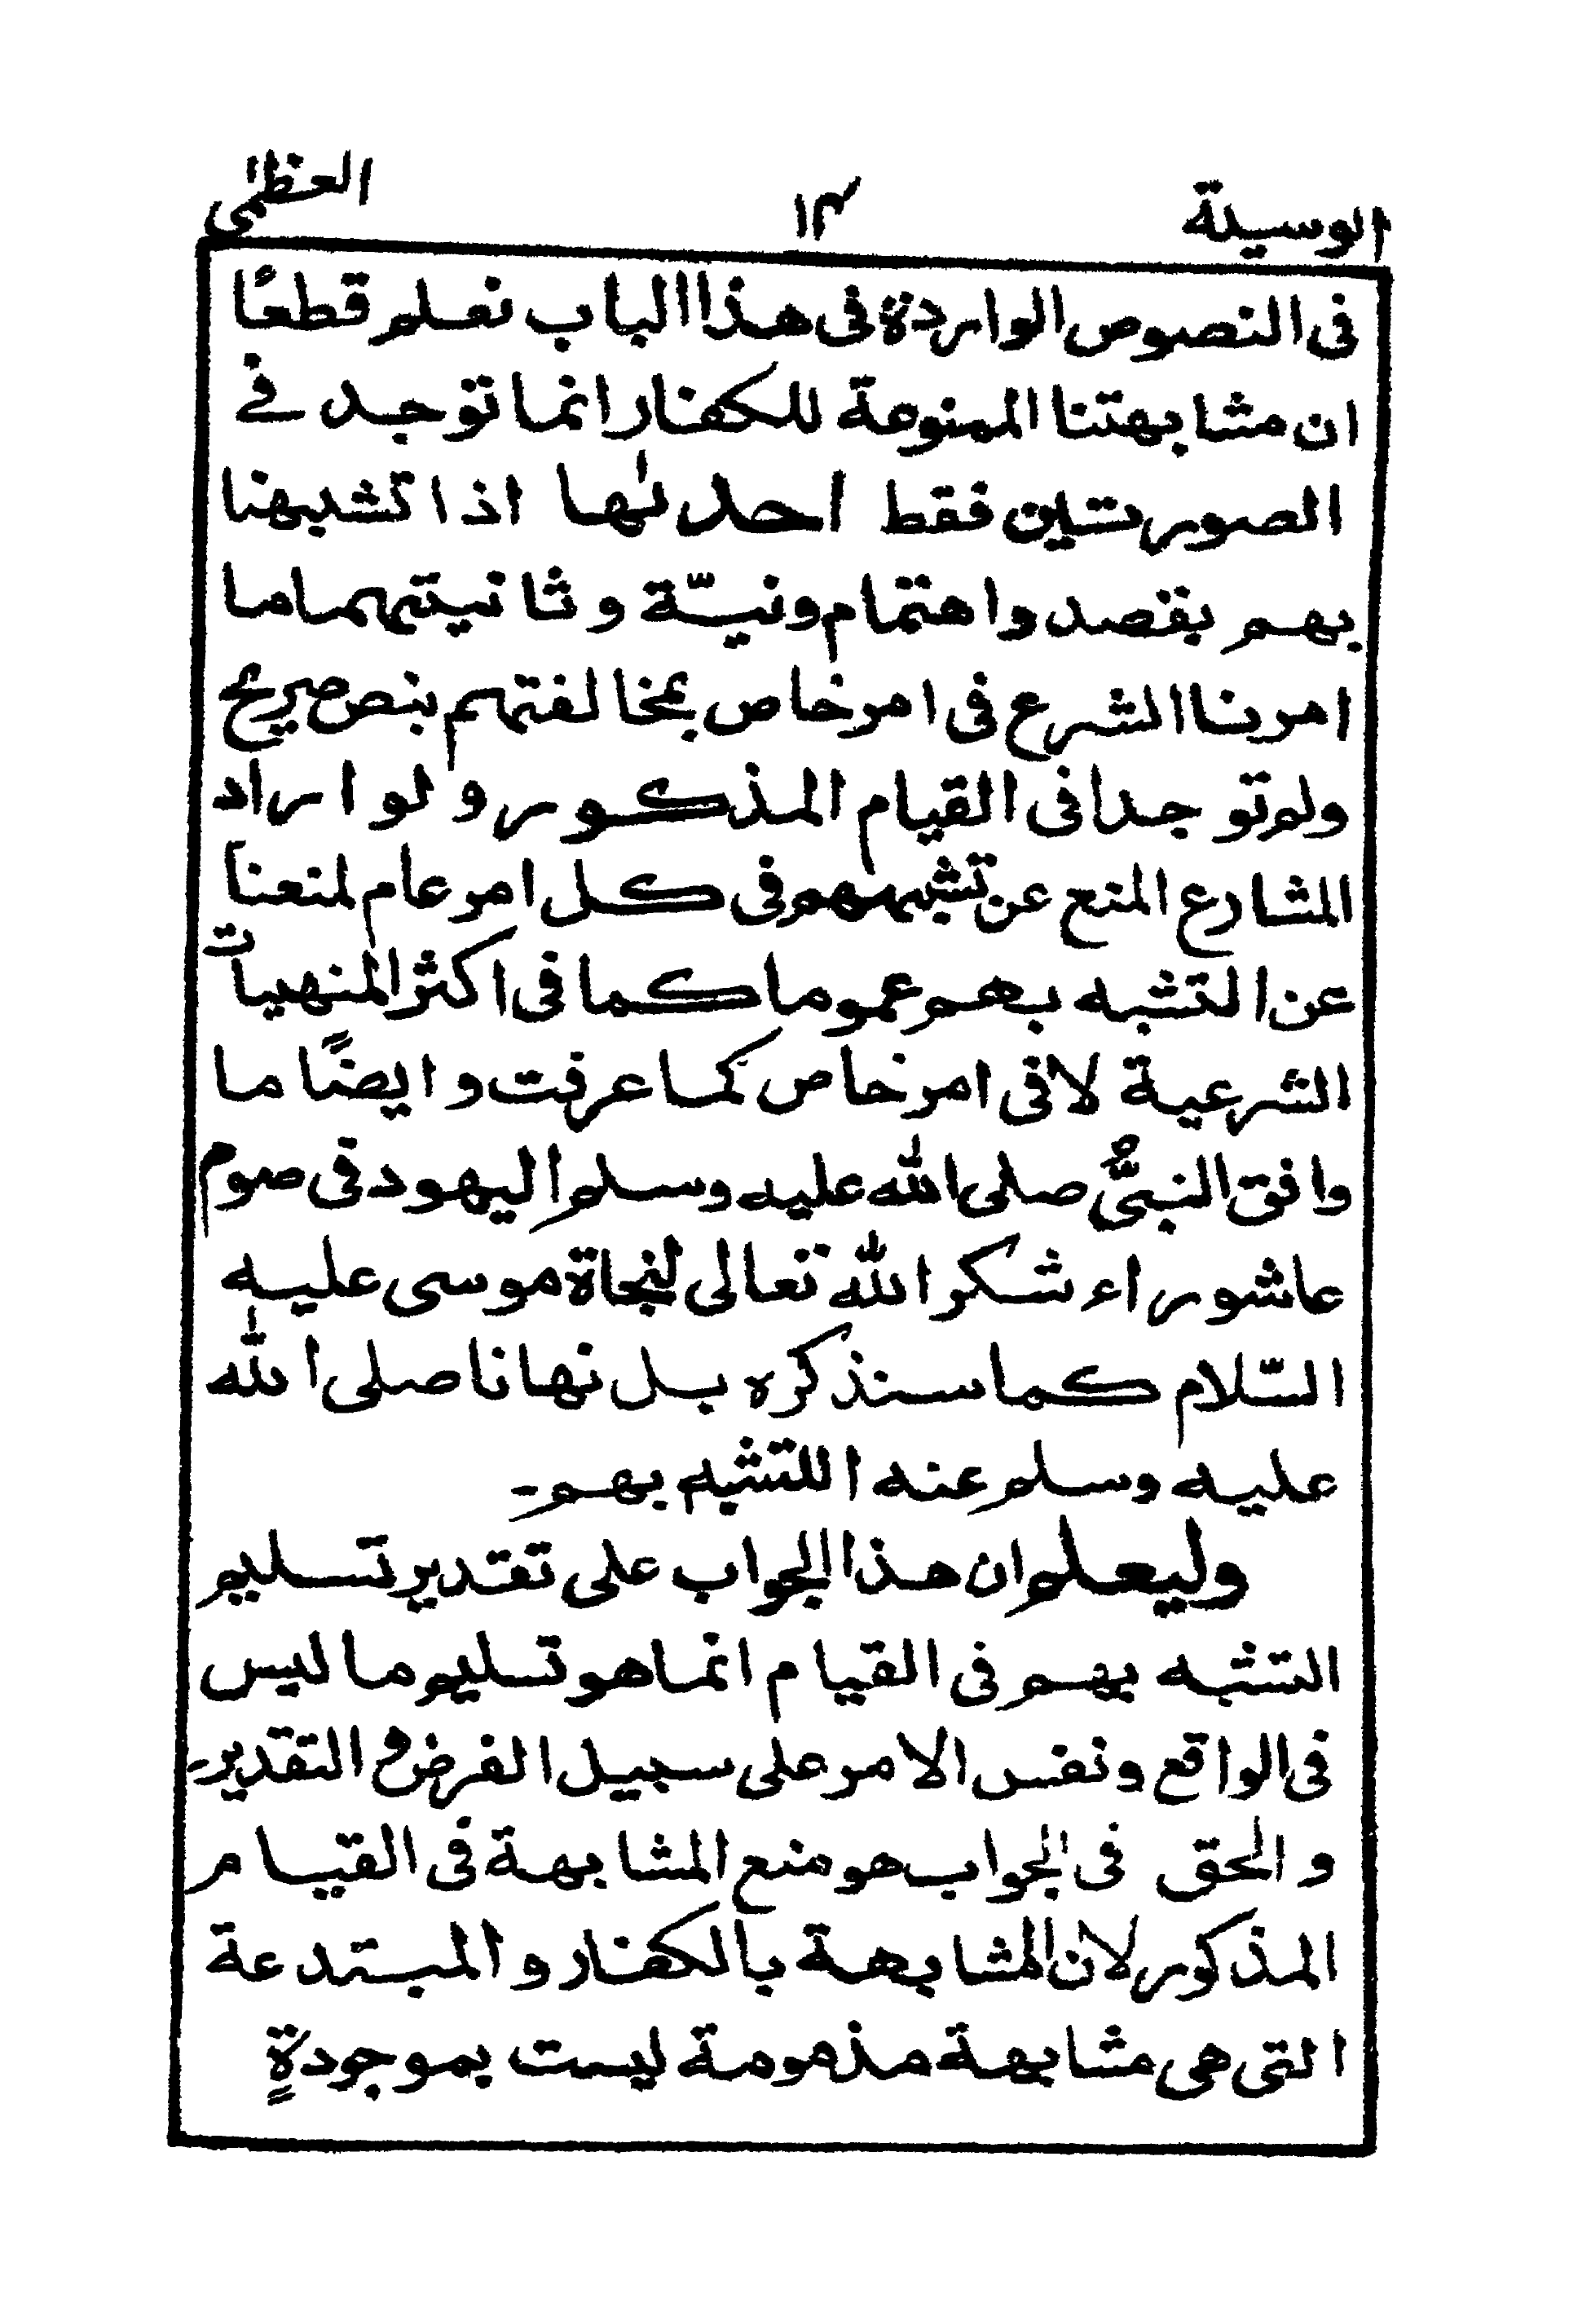 الوسيلة ١٤ العظمٰى
فى النصوص الواردة فى هذا الباب نعلم قطعًا
ان مشابهتنا الممنوعة للكفار انما توجد فے
الصورتين فقط احدٰىها اذا تشبهنا
بهم بقصد واهتمام ونيّة و ثانيتهما ما
امرنا الشرع فى امر خاص بمخالفتهم بنص صريح
ولم توجدا فى القيام المذكور و لو اراد
الشارع المنع عن تشبههم فى كل امر عام لمنعنا
عن التشبه بهم عموما كما فى اكثر المنهيات
الشرعية لا فى امر خاص كما عرفت و ايضًا ما
وافق النبىُّ صلى الله عليه وسلم اليهود فى صوم
عاشوراء شكر الله تعالى لنجاة موسى عليه
السّلام كما سنذكره بل نهانا صلى الله
عليه وسلم عنه اللتشبه بهم ـ
وليعلم ان هذا الجواب على تقدير تسليم
التشبه بهم فى القيام انما هو تسليم ما ليس
فى الواقع ونفس الامر على سبيل الفرض و التقدير
و الحق فى الجواب هو منع المشابهة فى القيام
المذكور لان المشابهة بالكفار و المبتدعة
التى هى مشابهة مذمومة ليست بموجودةٍ